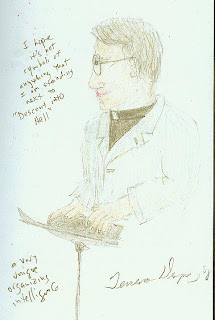 I hope
it's not
symbolic of
anything that
I am standing
next to
"Descent into
Hell"
a very
unique
organizing
intelligence